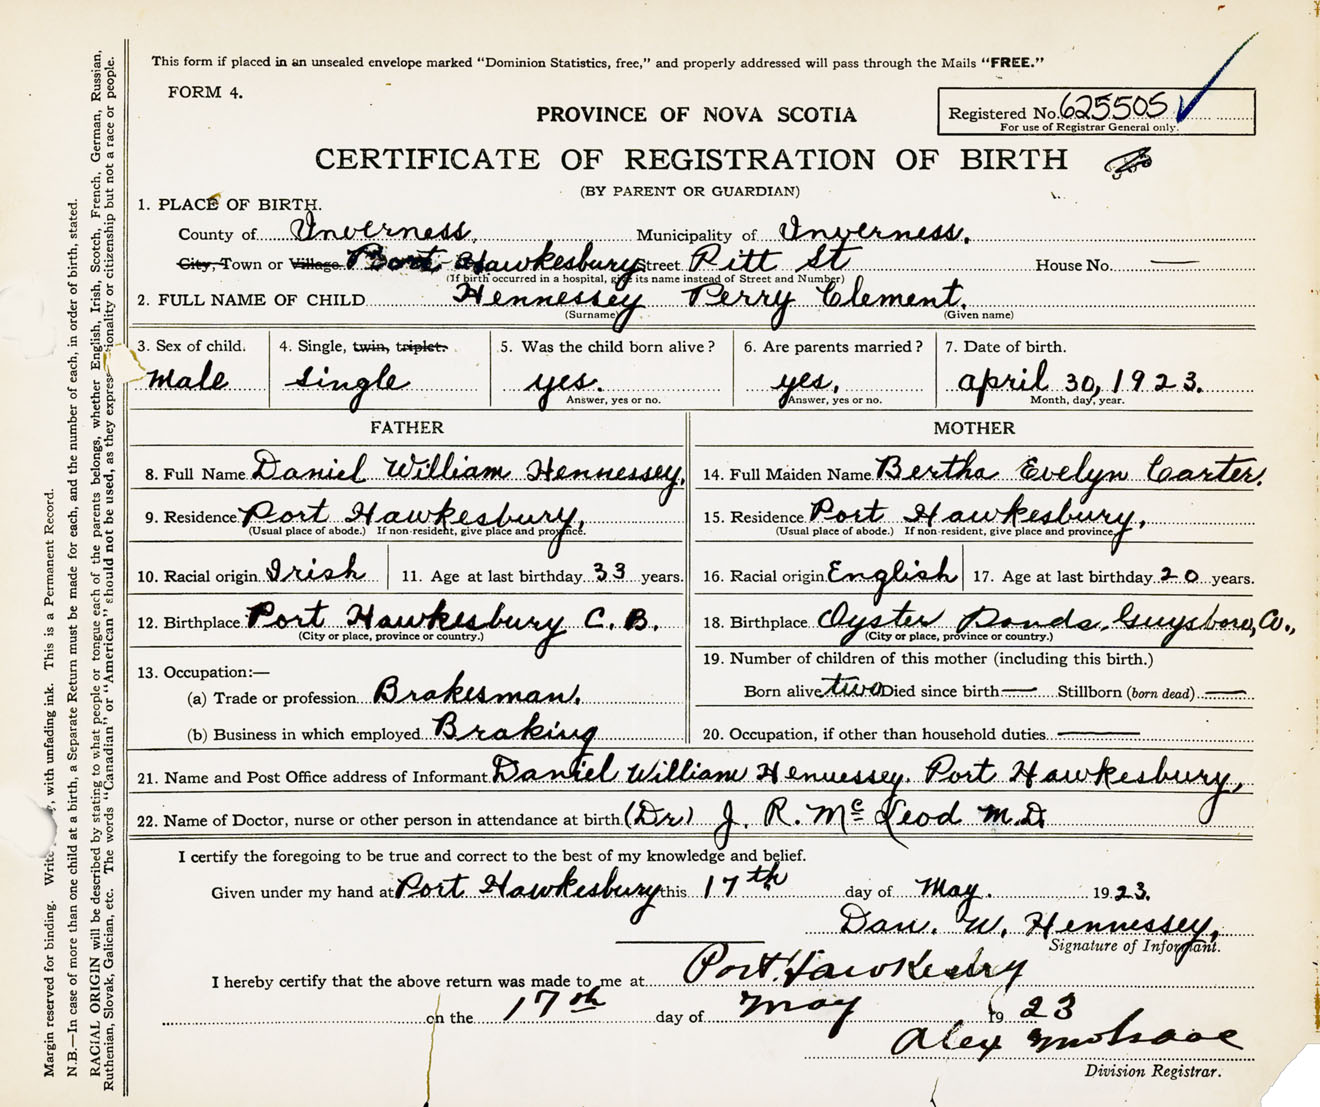 This form if placed in an unsealed envelope marked "Dominion Statistics, free," and properly addressed will pass through the Mails "FREE."
FORM 4.
Registered No. 625505
For use of Registrar General only.
PROVINCE OF NOVA SCOTIA
CERTIFICATE OF REGISTRATION OF BIRTH
(BY PARENT OR GUARDIAN)
1. PLACE OF BIRTH.
County of Inverness. Municipality of Inverness.
City, Town or Village Port Hawkesbury Street Pitt St House No. —
(If birth occurred in a hospital, give its name instead of Street and Number)
2. FULL NAME OF CHILD Hennessey Perry Clement.
(Surname) (Given name)
3. Sex of child. 4. Single, twin, triplet. 5. Was the child born alive? 6. Are parents married? 7. Date of birth.
Male single yes. yes. april 30, 1923.
Answer, yes or no. Answer, yes or no. Month, day, year.
FATHER
8. Full Name Daniel William Hennessey.
9. Residence Port Hawkesbury,
(Usual place of abode.) If non-resident, give place and province.
10. Racial origin Irish 11. Age at last birthday 33 years.
12. Birthplace Port Hawkesbury C. B.
(City or place, province or country.)
13. Occupation:—
(a) Trade or profession Brakesman.
(b) Business in which employed Braking
MOTHER
14. Full Maiden Name Bertha Evelyn Carter.
15. Residence Port Hawkesbury,
(Usual place of abode.) If non-resident, give place and province.
16. Racial origin English 17. Age at last birthday 20 years.
18. Birthplace Oyster Ponds, Guysboro, Co.,
(City or place, province or country.)
19. Number of children of this mother (including this birth.)
Born alive two Died since birth — Stillborn (born dead) —
20. Occupation, if other than household duties. —
21. Name and Post Office address of Informant Daniel William Hennessey. Port Hawkesbury,
22. Name of Doctor, nurse or other person in attendance at birth (Dr) J. R. Mc Leod M.D.
I certify the foregoing to be true and correct to the best of my knowledge and belief.
Given under my hand at Port Hawkesbury this 17th day of May. 1923.
Dan. W. Hennessey,
Signature of Informant.
I hereby certify that the above return was made to me at Port Hawkesbry
on the 17th day of May 1923
Alex McIsaac
Division Registrar.
Margin reserved for binding. Write with unfading ink. This is a Permanent Record.
N.B.—In case of more than one child at a birth, a Separate Return must be made for each, and the number of each, in order of birth, stated.
RACIAL ORIGIN will be described by stating to what people or tongue each of the parents belongs, whether English, Irish, Scotch, French, German, Russian,
Ruthenian, Slovak, Galician, etc. The words "Canadian" or "American" should not be used, as they express citizenship but not a race or people.